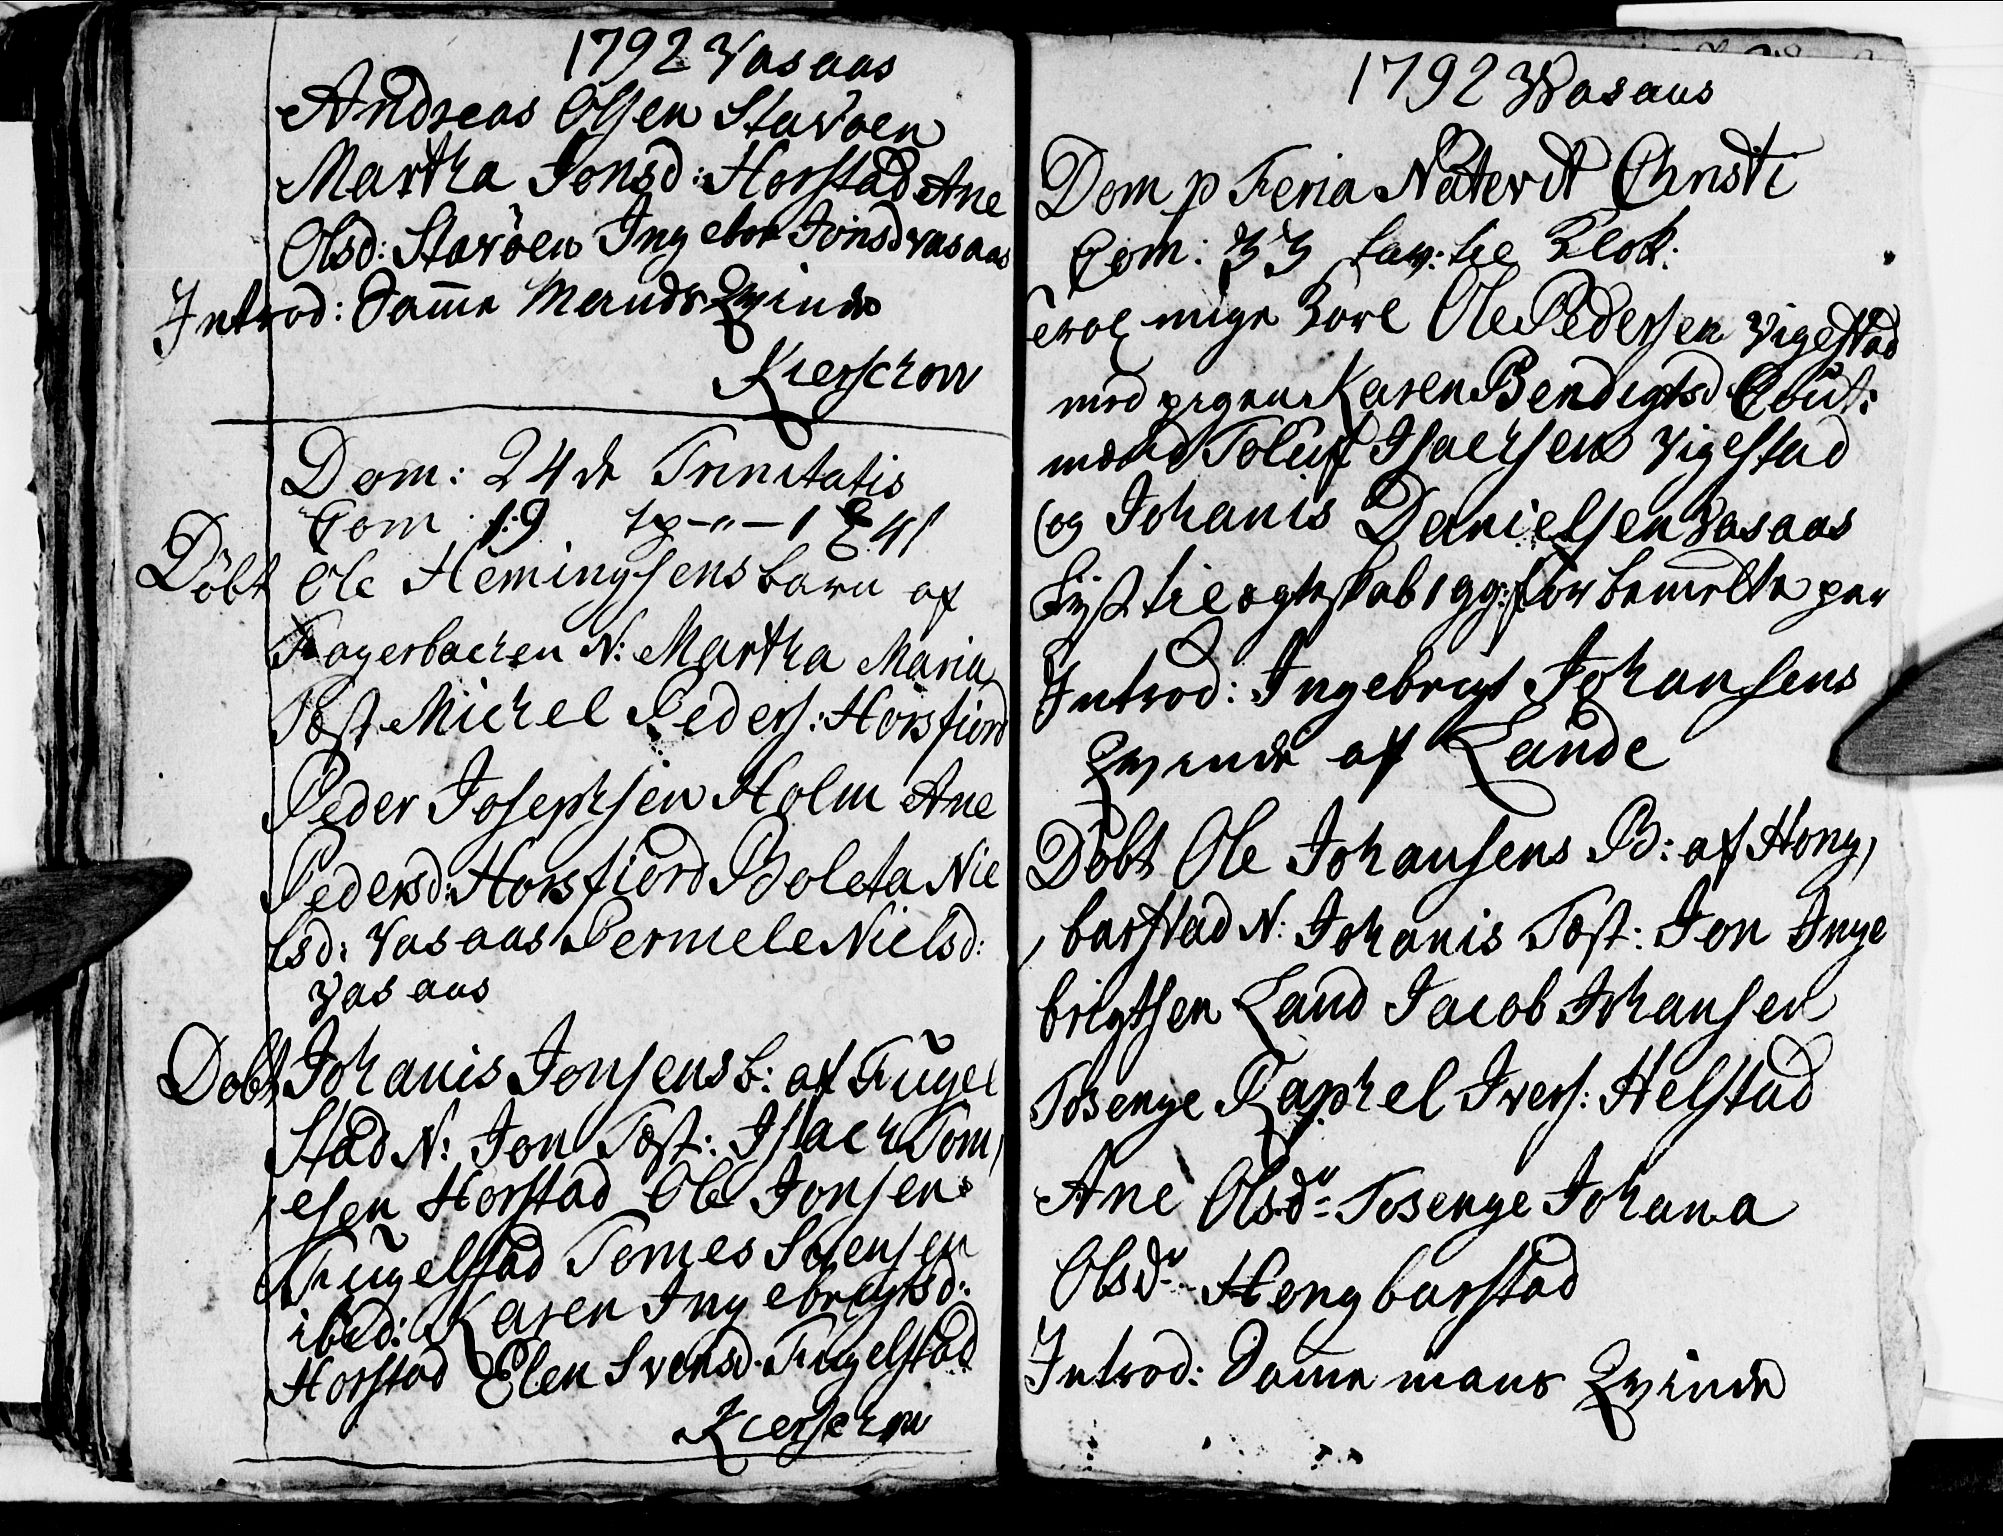 1792 Vasaas
Andreas Olsen Stavöen
Martha Jonsd: Horstad Ane
Olsd: Stavöen Ingebor Jonsd Vasaas
Introd: Samme Mands Qvinde
Kierschow
Dom: 24 de Trinitatis
Com: 19
Döbt Ole Hemingsens barn af
Fagerbacken N: Martha Maria
Test Michel Peders: Horsfiord
Peder Josephsen Holm Ane
Pedersd: Horsfiord Boleta Nie
lsd: Vasaas Pernele Nielsd:
Vasaas
Döbt Johanis Jonsens b: af Fugel
stad N: Jon Test: Isach Tom,
, esen Horstad Ole Jonsen
Fugelstad Tomes Sörensen
ibid: Karen Ingebrigtsd:
Horstad Elen Svensd. Fugelstad
Kierschow
1792 Vasaas
Dom p Feria Nativit Christi
Com: 33
Trol unge Karl Ole Pedersen Vigestad
med pigen Karen Bendigtsd Caut:
mænd Toluf Isachsen Vigestad
og Johanis Danielsen Vasaas
Lyst til ægteskab 1 gg: for bemelte par
Introd: Ingebrigt Johansens
Qvinde af Lande
Döbt Ole Johansens B: af Hong,
, barstad N: Johanis Test: Jon Inge
brigtsen Land Jacob Johansen
Tosenge Raphel Ivers: Helstad
Ane Olsdr Tosenge Johana
Olsdr Hongbarstad
Introd: Samme mans Qvinde